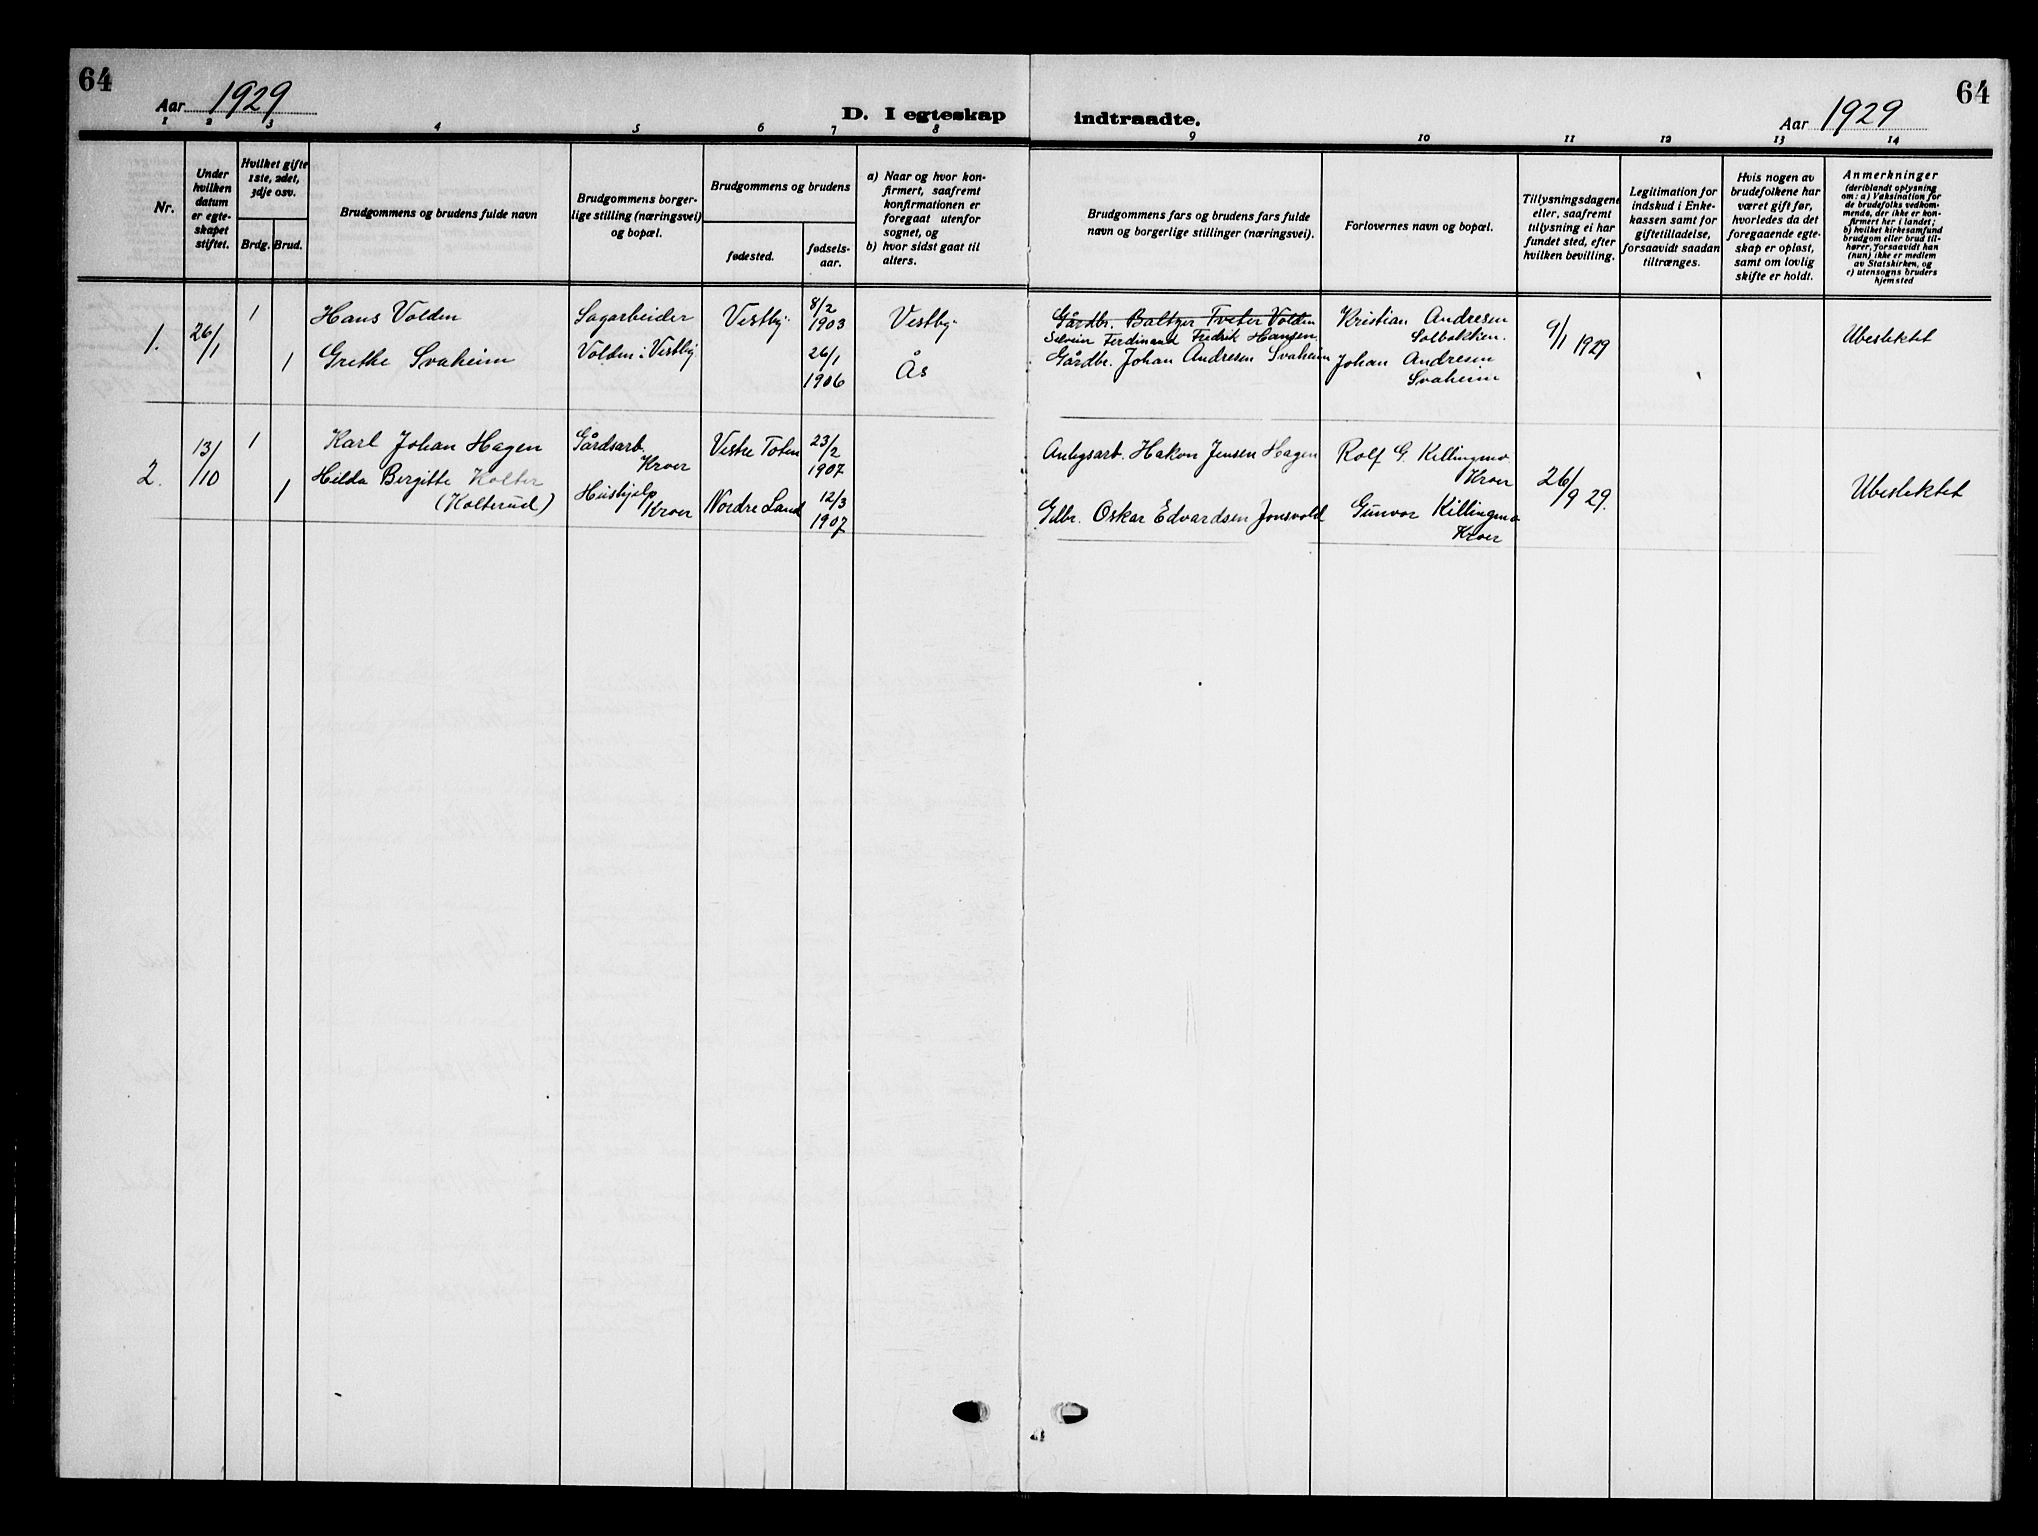 64
Aar 1929
D. I egteskap indtraadte.
Aar 1929
64
1 2 3 4 5 6 7 8 9 10 11 12 13 14
Nr.
Under
hvilken
datum
er egte-
skapet
stiftet.
Hvilket gifte
1ste, 2det,
3dje osv.
Brdg. Brud.
Brudgommens og brudens fulde navn
Brudgommens borger-
lige stilling (næringsvei)
og bopæl.
Brudgommens og brudens
fødested.
fødsels-
aar.
a) Naar og hvor kon-
firmert, saafremt
konfirmationen er
foregaat utenfor
sognet, og
b) hvor sidst gaat til
alters.
Brudgommens fars og brudens fars fulde
navn og borgerlige stillinger (næringsvei).
Forlovernes navn og bopæl.
Tillysningsdagene
eller, saafremt
tillysning ei har
fundet sted, efter
hvilken bevilling.
Legitimation for
indskud i Enke-
kassen samt for
giftetilladelse,
forsaavidt saadan
tiltrænges.
Hvis nogen av
brudefolkene har
været gift før,
hvorledes da det
foregaaende egte-
skap er opløst,
samt om lovlig
skifte er holdt.
Anmerkninger
(deriblandt oplysning
om: a) Vaksination for
de brudefolks vedkom-
mende, der ikke er kon-
firmert her i landet;
b) hvilket kirkesamfund
brudgom eller brud til-
hører, forsaavidt han
(hun) ikke er medlem
av Statskirken, og
c) utensogns bruders
hjemsted
1.
26/1
1
Hans Volden
Sagarbeider
Vestby.
8/2
1903
Vestby.
Gårdbr. Baltzer Tveter Volden
Ferdinand Fredrik Hansen.
Kristian Andresen
Solbakken.
9/1 1929
Ubeslektet
1
Grethe Svaheim
Volden i Vestby
26/1
1906
Ås
Gårdbr. Johan Andresen Svaheim
Johan Andresen
Svaheim
2.
13/10
1
Karl Johan Hagen
Gårdsarb.
Kroer
Vestre Toten
23/2
1907
Anlegsarb. Hakon Jensen Hagen
Rolf G. Killingmo
Kroer
26/9 29.
Ubeslektet
1
Hilda Birgitte Kolter
(Kolterud)
Hushjelp
Kroer
Nordre Land
12/3
1907
Gdbr. Oskar Edvardsen Jonsvold
Gunvor Killingmo
Kroer